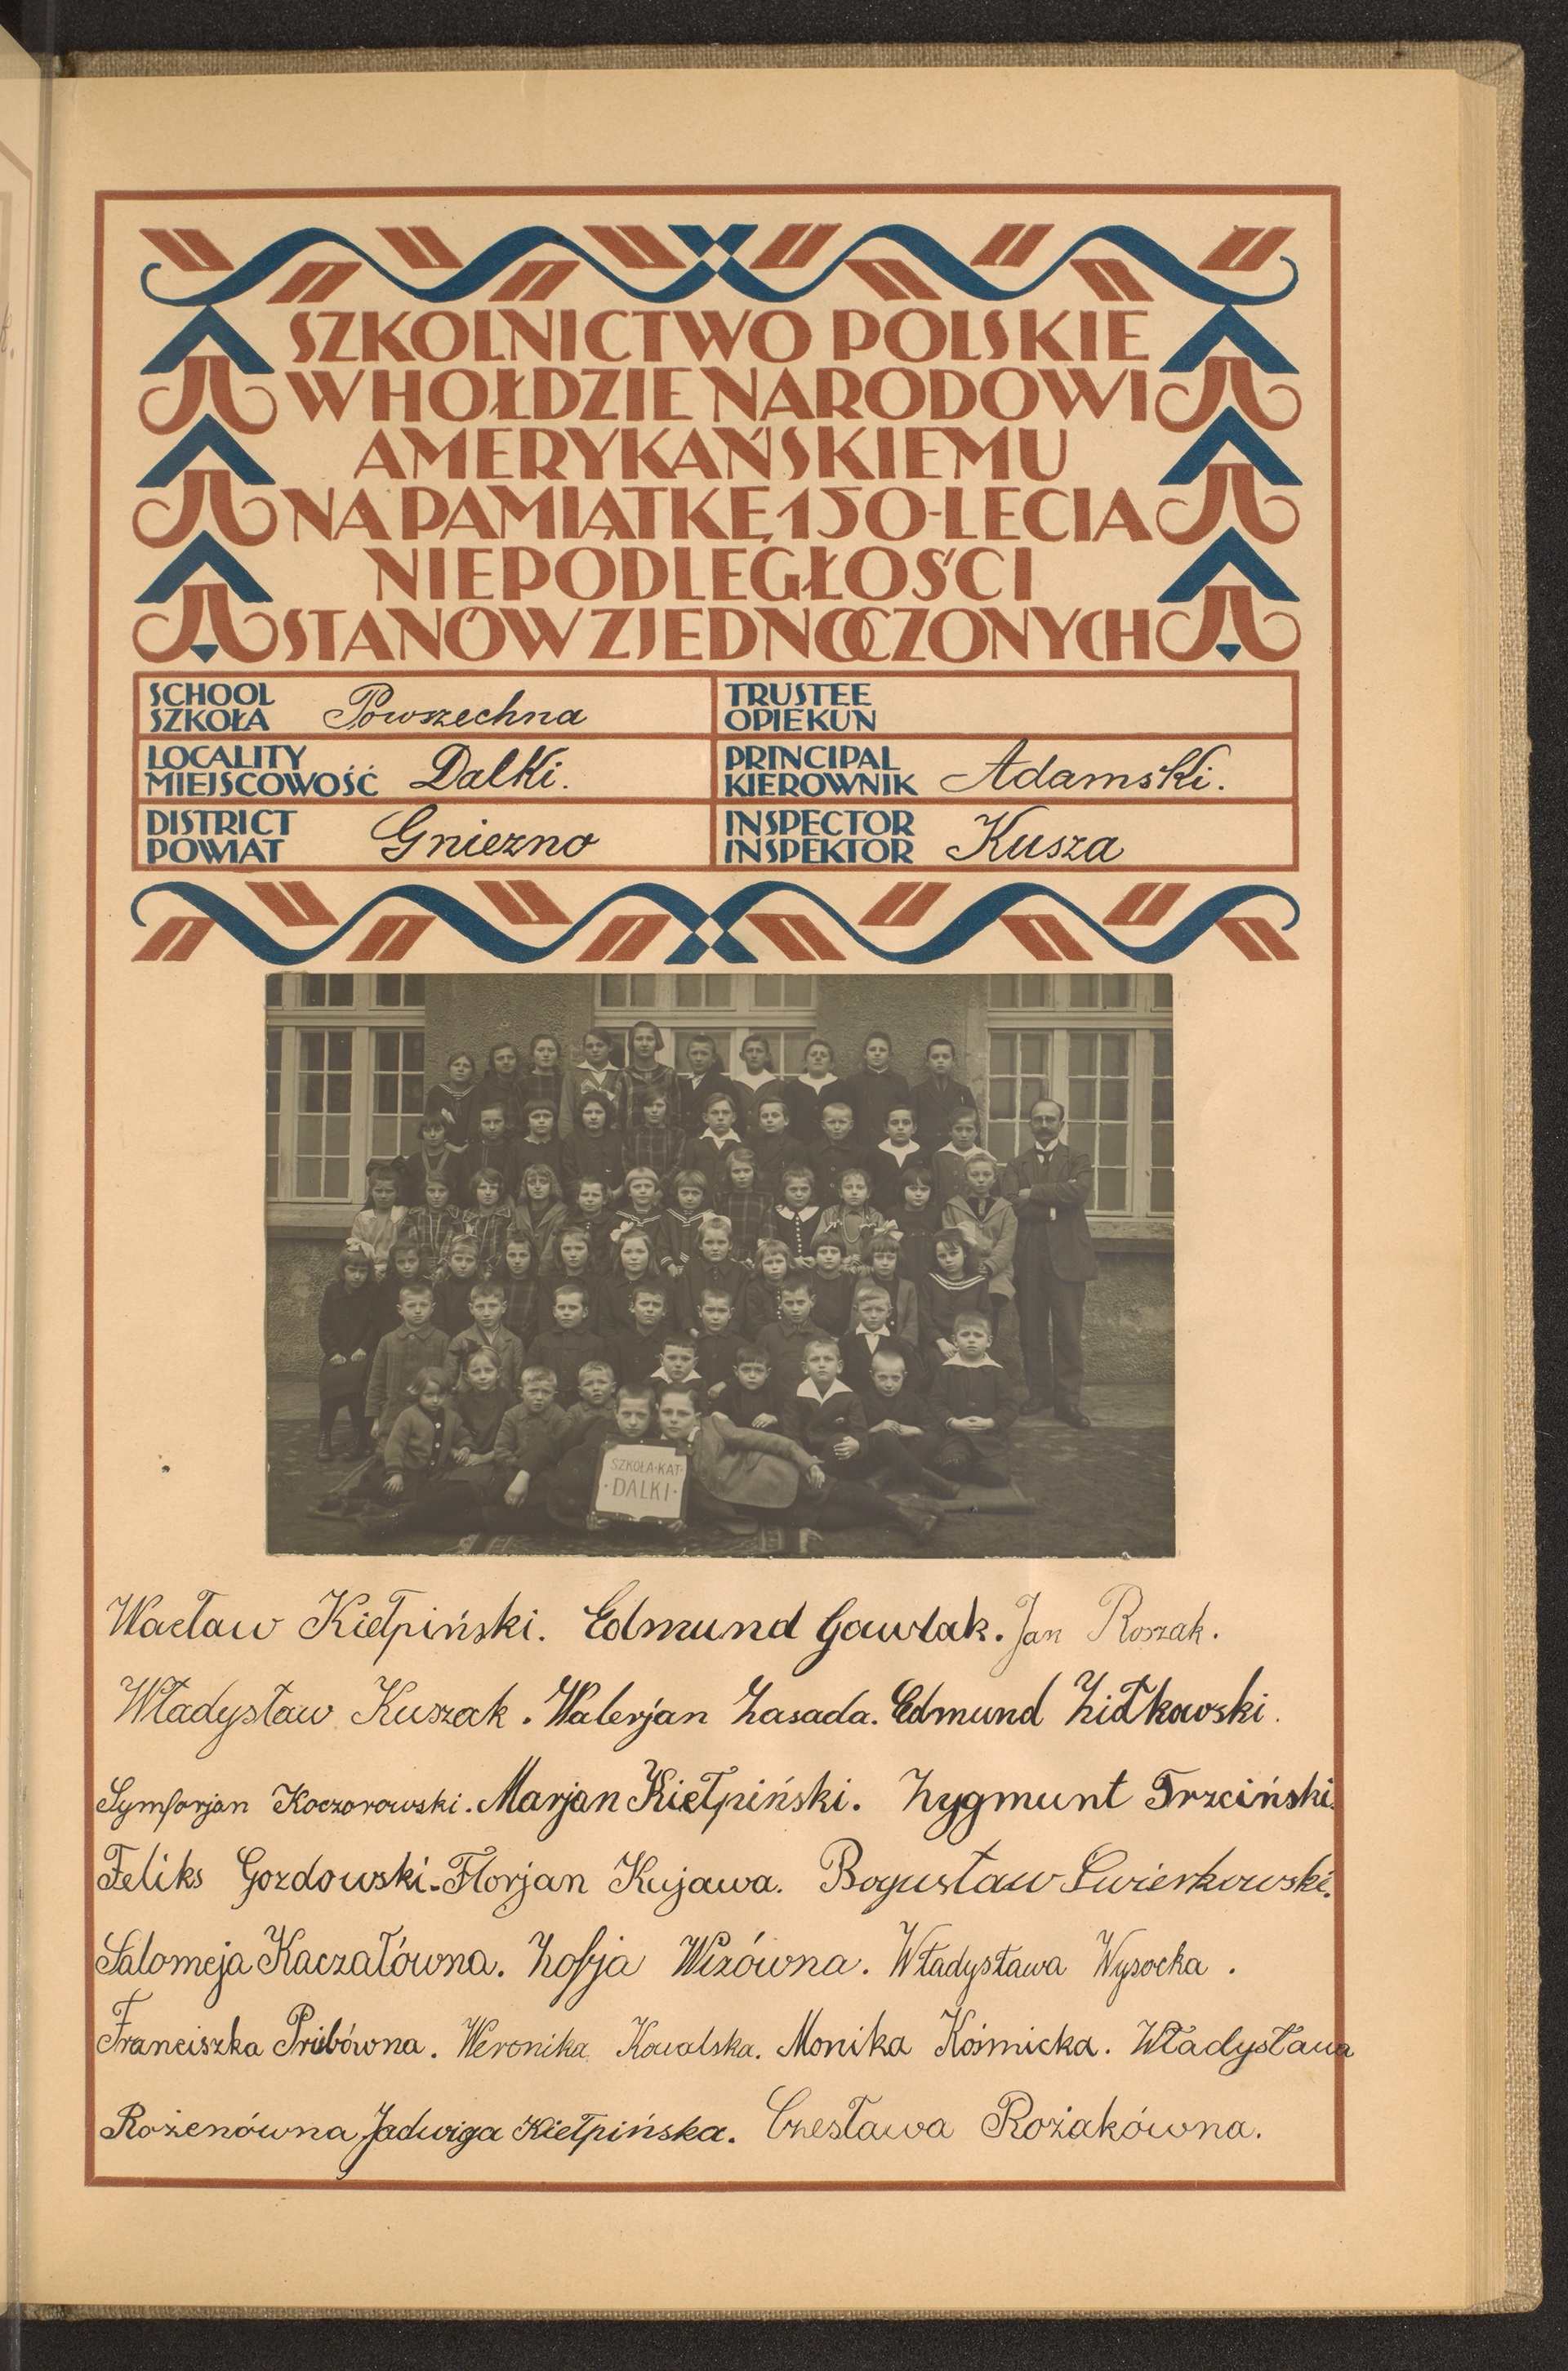 SZKOLNICTWO POLSKIE
W HOŁDZIE NARODOWI
AMERYKAŃSKIEMU
NA PAMIĄTKĘ 150-LECIA
NIEPODLEGŁOŚCI
STANÓW ZJEDNOCZONYCH
SCHOOL
SZKOŁA Powszechna
TRUSTEE
OPIEKUN
LOCALITY
MIEJSCOWOŚĆ Dalki.
PRINCIPAL
KIEROWNIK Adamski.
DISTRICT
POWIAT Gniezno
INSPECTOR
INSPEKTOR Kusza
SZKOŁA·KAT·
·DALKI·
Wacław Kiełpiński. Edmund Gawlak. Jan Roszak.
Władysław Kuszak. Walerjan Zasada. Edmund Ziółkowski.
Symforjan Koczorowski. Marjan Kiełpiński. Zygmunt Trzciński.
Feliks Gozdowski. Florjan Kujawa. Bogusław Świerkowski.
Salomeja Kaczałówna. Zofja Wizówna. Władysława Wysocka.
Franciszka Pribówna. Weronika Kowalska. Monika Kośmicka. Władysława
Rożenówna Jadwiga Kiełpińska. Czesława Rożakówna.